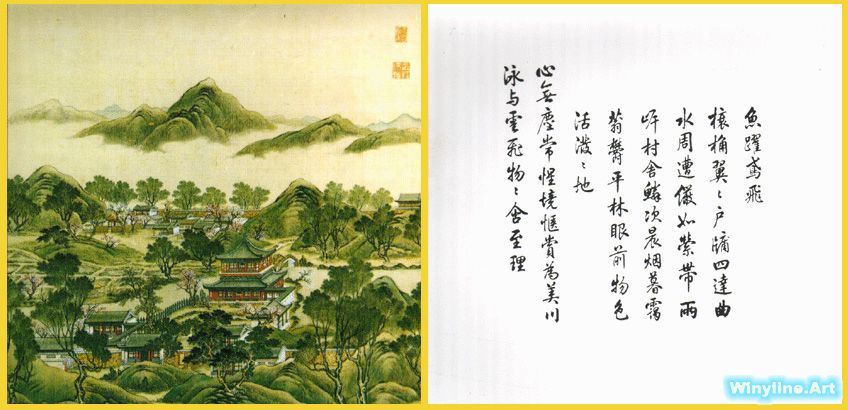 魚躍鳶飛
榱桷翼〻戶牖四達曲
水周遭儼如縈帶兩
岸村舍鱗次晨烟暮靄
蓊鬱平林眼前物色
活潑〻地
心無塵常惺境愜賞為美川
泳与雲飛物〻含至理
Winyline.Art